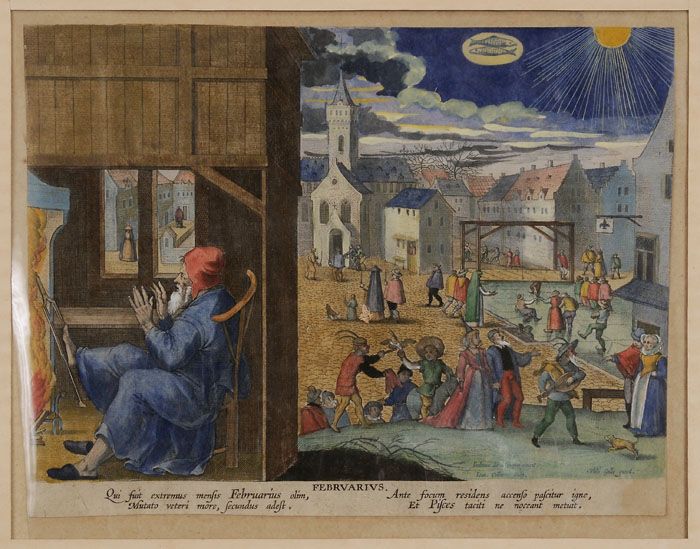 FEBRVARIVS.
Qui fuit extremus mensis Februarius olim,
Mutato veteri more, secundus adest.
Ante focum residens accenso pascitur igne,
Et Pisces taciti ne noceant metuit.